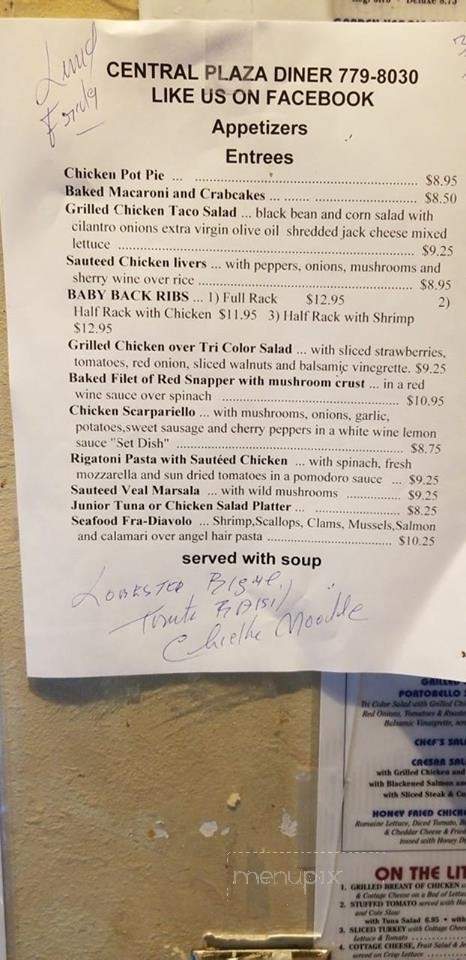 Lunch
Friday
CENTRAL PLAZA DINER 779-8030
LIKE US ON FACEBOOK
Appetizers
Entrees
Chicken Pot Pie ... ........ $8.95
Baked Macaroni and Crabcakes ... ........ $8.50
Grilled Chicken Taco Salad ... black bean and corn salad with
cilantro onions extra virgin olive oil shredded jack cheese mixed
lettuce ........ $9.25
Sauteed Chicken livers ... with peppers, onions, mushrooms and
sherry wine over rice ........ $8.95
BABY BACK RIBS ... 1) Full Rack $12.95 2)
Half Rack with Chicken $11.95 3) Half Rack with Shrimp
$12.95
Grilled Chicken over Tri Color Salad ... with sliced strawberries,
tomatoes, red onion, sliced walnuts and balsamic vinegrette. $9.25
Baked Filet of Red Snapper with mushroom crust ... in a red
wine sauce over spinach ........ $10.95
Chicken Scarpariello ... with mushrooms, onions, garlic,
potatoes,sweet sausage and cherry peppers in a white wine lemon
sauce "Set Dish" ........ $8.75
Rigatoni Pasta with Sautéed Chicken ... with spinach, fresh
mozzarella and sun dried tomatoes in a pomodoro sauce ... $9.25
Sauteed Veal Marsala ... with wild mushrooms ........ $9.25
Junior Tuna or Chicken Salad Platter ... ........ $8.25
Seafood Fra-Diavolo ... Shrimp,Scallops, Clams, Mussels,Salmon
and calamari over angel hair pasta ........ $10.25
served with soup
Lobester Bisque
Chicken Noodle
GRILLED
PORTOBELLO
Tri Color Salad with Grilled
Red Onions, Tomatoes &
Balsamic Vinaigrette,
CHEF'S
CAESAR
with Grilled Chicken
with Blackened Salmon
with Sliced Steak &
HONEY FRIED
Romaine Lettuce, Diced Tomato,
& Cheddar Cheese &
tossed with Honey
menupix
ON THE
1. GRILLED BREAST OF CHICKEN
& Cottage Cheese on a Bed of
2. STUFFED TOMATO served with
and Cole Slaw
with Tuna Salad 6.95 •
3. SLICED TURKEY with Cottage
Lettuce & Tomato
4. COTTAGE CHEESE, Fruit Salad &
served on Crisp Lettuce